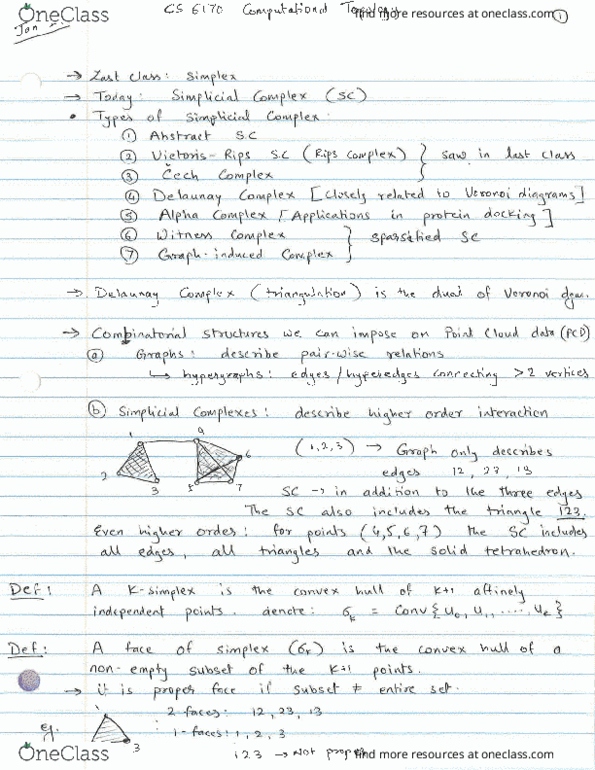 OneClass
CS 6170 Computational Topology
find more resources at oneclass.com
1
Jan
→ Last class: Simplex
→ Today: Simplicial Complex (SC)
• Types of Simplicial Complex:
① Abstract S.C
② Vietoris-Rips S.C (Rips Complex) } saw in last class
③ Čech Complex
④ Delaunay Complex [Closely related to Veronoi diagrams]
⑤ Alpha Complex [Applications in protein docking]
⑥ Witness Complex } sparsified SC
⑦ Graph-induced Complex
→ Delaunay Complex (triangulation) is the dual of Veronoi dgm.
→ Combinatorial structures we can impose on Point Cloud data (PCD)
ⓐ Graphs: describe pair-wise relations
↳ hypergraphs: edges/hyperedges connecting >2 vertices
ⓑ Simplicial Complexes: describe higher order interaction
1 2 3 5 6 7
(1,2,3) → Graph only describes
edges 12, 23, 13
SC → in addition to the three edges
The SC also includes the triangle 123.
Even higher order: for points (4,5,6,7) the SC includes
all edges, all triangles and the solid tetrahedron.
Def: A K-simplex is the convex hull of K+1 affinely
independent points. denote: σk = Conv{u0, u1, .... uk}
Def: A face of simplex (σk) is the convex hull of a
non-empty subset of the K+1 points.
→ it is proper face if subset ≠ entire set.
Eg. 1 3 : 2-faces: 12, 23, 13
: 1-faces: 1, 2, 3
123 → Not
OneClass
find more resources at oneclass.com